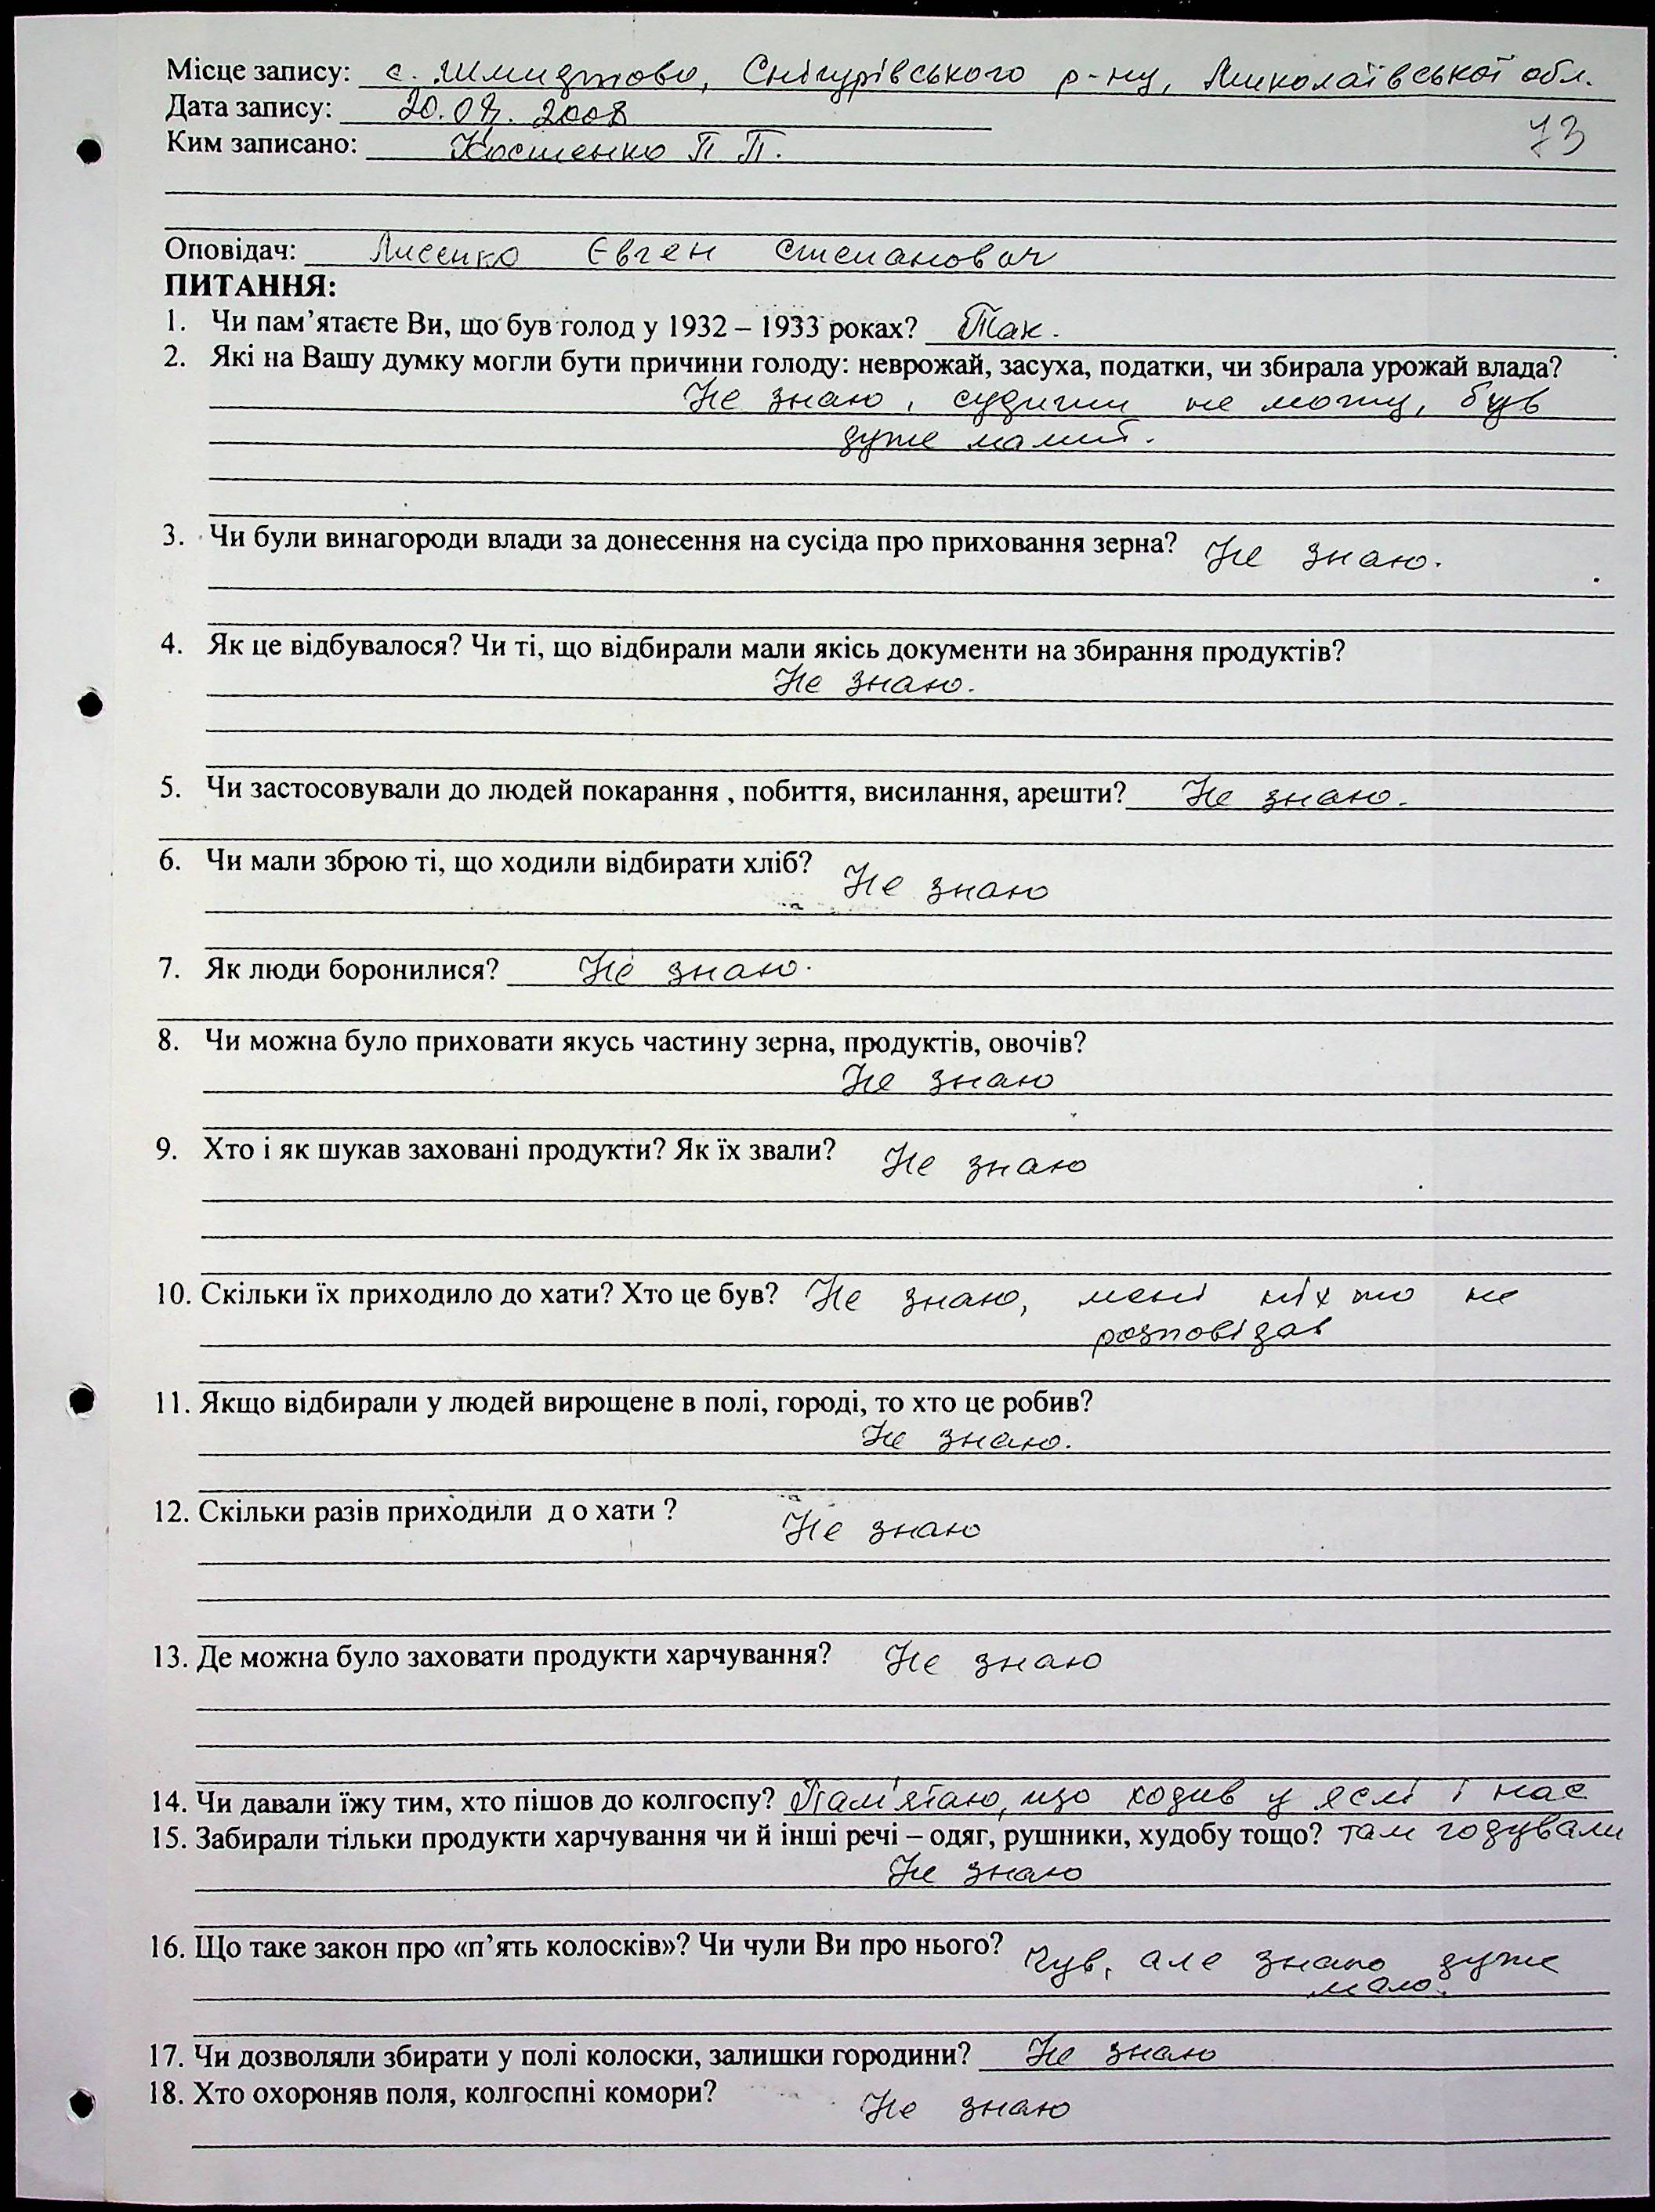 Місце запису: с. Шмидтово, Снігурівського р-ну, Миколаївської обл.
Дата запису: 20.07. 2008
73
Ким записано: Костенко П П.
Оповідач: Лисенко Євген Степанович
ПИТАННЯ:
1. Чи пам’ятаєте Ви, що був голод у 1932 – 1933 роках? Так.
2. Які на Вашу думку могли бути причини голоду: неврожай, засуха, податки, чи збирала урожай влада?
Не знаю, судити не можу, був
дуже малий.
3. Чи були винагороди влади за донесення на сусіда про приховання зерна? Не знаю.
4. Як це відбувалося? Чи ті, що відбирали мали якісь документи на збирання продуктів?
Не знаю.
5. Чи застосовували до людей покарання , побиття, висилання, арешти? Не знаю.
6. Чи мали зброю ті, що ходили відбирати хліб? Не знаю
7. Як люди боронилися? Не знаю.
8. Чи можна було приховати якусь частину зерна, продуктів, овочів?
Не знаю
9. Хто і як шукав заховані продукти? Як їх звали? Не знаю
10. Скільки їх приходило до хати? Хто це був? Не знаю, мені ніхто не
розповідав
11. Якщо відбирали у людей вирощене в полі, городі, то хто це робив?
Не знаю.
12. Скільки разів приходили д о хати ? Не знаю
13. Де можна було заховати продукти харчування? Не знаю
14. Чи давали їжу тим, хто пішов до колгоспу? Пам'ятаю, що ходив у яслі і нас
15. Забирали тільки продукти харчування чи й інші речі – одяг, рушники, худобу тощо? там годували
Не знаю
16. Що таке закон про «п’ять колосків»? Чи чули Ви про нього? Чув, але знаю дуже
мало.
17. Чи дозволяли збирати у полі колоски, залишки городини? Не знаю
18. Хто охороняв поля, колгоспні комори? Не знаю